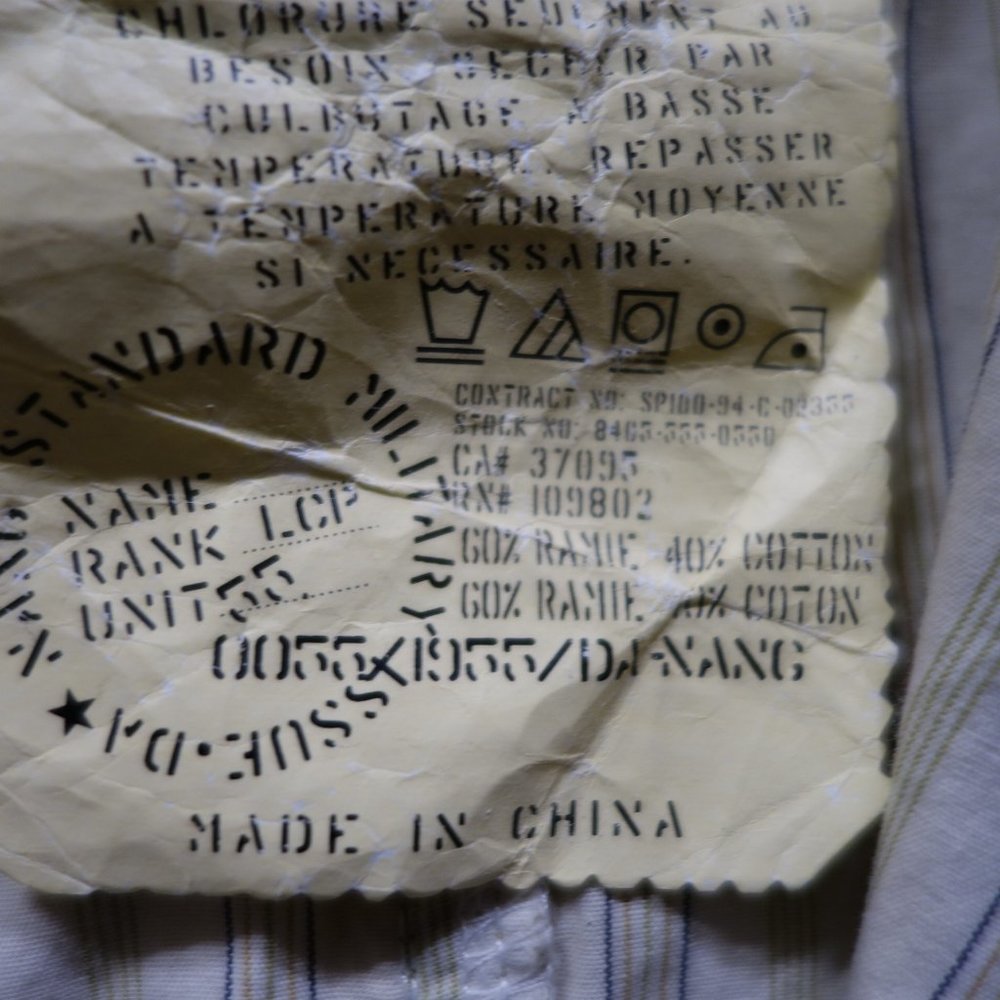 CHLORURE SEULMENT AU
BESOIN SECHER PAR
CULBUTAGE A BASSE
TEMPERATURE. REPASSER
A TEMPERATURE MOYENNE
SI NECESSAIRE.
STANDARD MILITARY ISSUE • DA
CONTRACT NO: SP100-94-C-02355
STOCK NO: 8405-555-0550
CA# 37095
RN# 109802
NAME
RANK LCP
UNIT 55
60% RAMIE 40% COTTON
60% RAMIE 40% COTON
0055/1955/DA-NANG
MADE IN CHINA